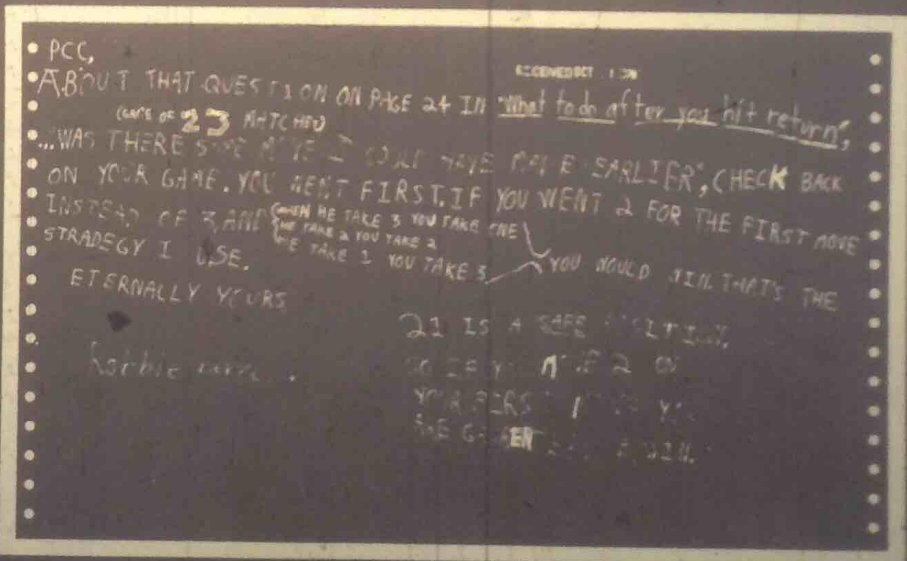 PCC,
RECEIVED OCT
ABOUT THAT QUESTION ON PAGE 24 IN "What to do after you hit return",
(GAME OF 23 MATCHES)
...WAS THERE SOME MOVE I COULD HAVE MADE EARLIER", CHECK BACK
ON YOUR GAME. YOU WENT FIRST. IF YOU WENT 2 FOR THE FIRST MOVE
INSTEAD OF 3, AND
WHEN HE TAKE 3 YOU TAKE ONE
HE TAKE 2 YOU TAKE 2
HE TAKE 1 YOU TAKE 3
YOU WOULD WIN. THAT'S THE
STRADEGY I USE.
ETERNALLY YOURS
21 IS A SAFE POSITION,
SO IF YOU MOVE 2 ON
YOUR FIRST MOVE YOU
ARE WIN.